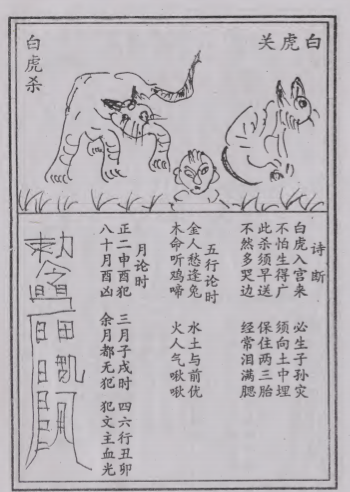 关虎白
白虎杀
诗断
白虎入宫来 必生子孙灾
不怕生得广 须向土中埋
此杀须早送 保住两三胎
不然多哭边 经常泪满腮
五行论时
金人愁逢兔 水土与前优
木命听鸡啼 火人气啾啾
月论时
正二申酉犯 三月子戌时 四六行丑卯
八十月酉凶 余月都无犯 犯文主血光
敕